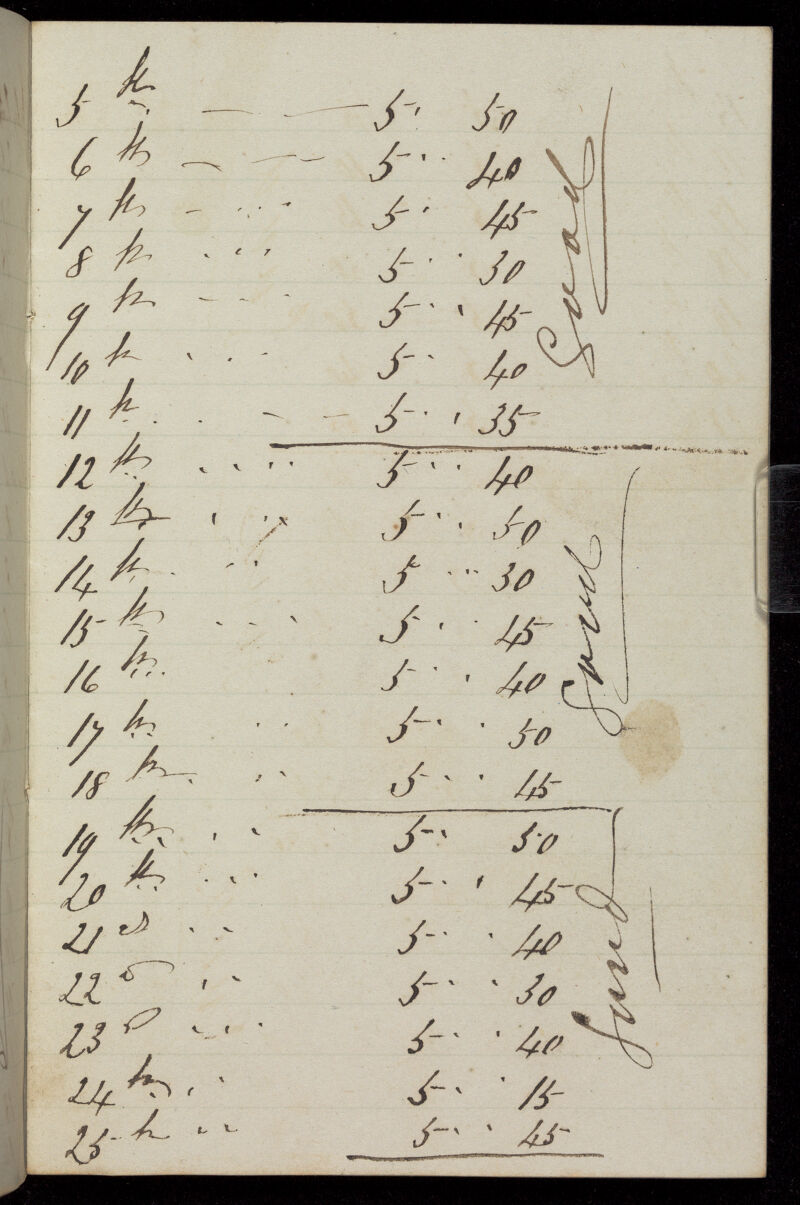 5th — — 5 · 50
6th — — 5 ·· 40
7th - ··· 5 · 45
8th ··· 5 ·· 30
9th - - - 5 ·· 45
10th · · · 5 · 40
11th · · - - 5 ·· 35
Good
12th ···· 5 ·· 40
13th · ·· 5 ·· 50
14th · ·· 5 ·· 30
15th ··· 5 ·· 45
16th ·· 5 ·· 40
17th ·· 5 ·· 50
18th · ·· 5 ·· 45
19th · · 5 · 50
20th ··· 5 ·· 45
21st ·· 5 ·· 40
22d ·· 5 ·· 30
23d ··· 5 ·· 40
24th ·· 5 ·· 15
25th ·· 5 ·· 45